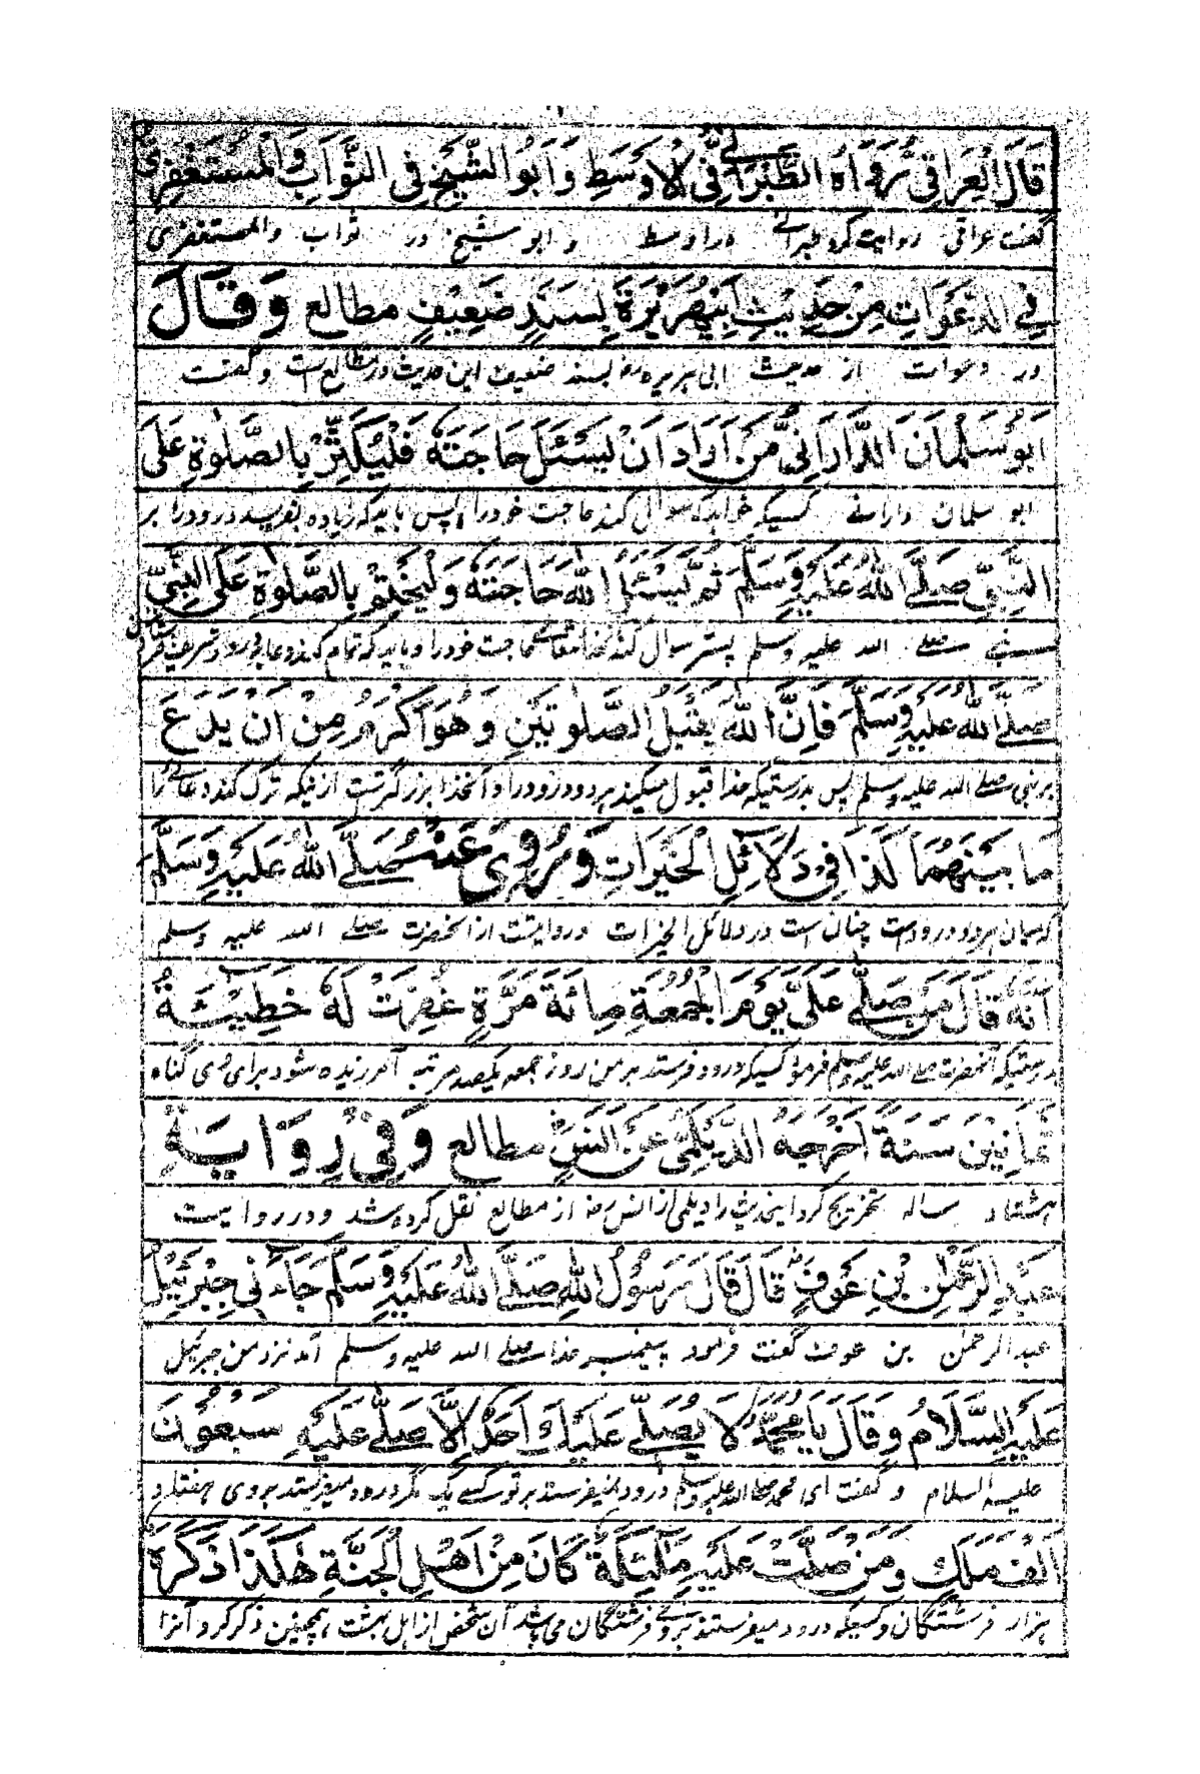 قَالَ الْعِرَاقِیُّ رَوَاهُ الطَّبْرَانِیُّ فِی الْاَوْسَطِ وَ اَبُو الشَّیْخِ فِی الثَّوَابِ وَ الْمُسْتَغْفِرِیُّ
گفت عراقی روایت کرد طبرانے در اوسط و ابو شیخ در ثواب والمستغفری
فِی الدَّعَوَاتِ مِنْ حَدِیْثِ اَبِیْهُرَیْرَةَ بِسَنَدٍ ضَعِیْفٍ مطالع وَقَالَ
در دعوات از حدیث ابی ہریرہ رضہ بسند ضعیف این حدیث در مطالع است و گفت
اَبُوْسَلْمَانَ الدَّارَانِیُّ مَنْ اَرَادَ اَنْ یَّسْئَلَ حَاجَتَهٗ فَلْیُکْثِرْ بِالصَّلٰوةِ عَلَی
ابو سلمان دارانے کسیکہ خواہد کہ سوال کند حاجت خود را پس باید کہ زیادہ بفرستد درود را بر
النَّبِیِّ صَلَّے اللّٰهُ عَلَیْهِ وَسَلَّمَ ثُمَّ یَسْئَلُ اللّٰهَ حَاجَتَهٗ وَلْیَخْتِمْ بِالصَّلٰوةِ عَلَی النَّبِیِّ
نبی صلے اللہ علیہ وسلم پستر سوال کند حاجت خود را و باید کہ تمام کند
صَلَّے اللّٰهُ عَلَیْهِ وَسَلَّمَ فَاِنَّ اللّٰهَ یَقْبَلُ الصَّلٰوتَیْنِ وَهُوَ اَکْرَمُ مِنْ اَنْ یَدَعَ
بر نبی صلے اللہ علیہ وسلم پس بدرستیکہ خدا قبول میکند ہر دو درود را و آنخدا بزرگترست از نیکہ ترک کند دعائے را
مَا بَیْنَهُمَا کَذَا فِیْ دَلَائِلِ الْخَیْرَاتِ وَرُوِیَ عَنْهُ صَلَّے اللّٰهُ عَلَیْهِ وَسَلَّمَ
کہ میان ہر دو درود است چنان است در دلائل الخیرات و روایتست از آنحضرت صلے اللہ علیہ وسلم
اَنَّهٗ قَالَ مَنْ صَلّٰے عَلَیَّ یَوْمَ الْجُمُعَةِ مِائَةَ مَرَّةٍ غُفِرَتْ لَهٗ خَطِیْئَةُ
بدرستیکہ آنحضرت صلے اللہ علیہ وسلم فرمود کسیکہ درود فرستد بر من روز جمعہ یکصد مرتبہ آمرزیدہ شود برای وی گناہ
ثَمَانِیْنَ سَنَةً اَخْرَجَهُ الدَّیْلَمِیُّ عَنْ اَنَسٍ مطالع وَفِیْ رِوَایَةِ
ہشتاد سالہ تخریج کرد اینحدیث را دیلمی از انس رضہ از مطالع نقل کردہ شد و در روایت
عَبْدِ الرَّحْمٰنِ بْنِ عَوْفٍ قَالَ قَالَ رَسُوْلُ اللّٰهِ صَلَّے اللّٰهُ عَلَیْهِ وَسَلَّمَ جَآءَنِیْ جِبْرَئِیْلُ
عبدالرحمٰن بن عوف گفت فرمود پیغمبر خدا صلے اللہ علیہ وسلم آمد نزد من جبرئیل
عَلَیْهِ السَّلَامُ وَقَالَ یَا مُحَمَّدُ لَا یُصَلِّیْ عَلَیْكَ اَحَدٌ اِلَّا صَلّٰے عَلَیْهِ سَبْعُوْنَ
علیہ السلام و گفت ای محمد صلے اللہ علیہ وسلم درود نمیفرستد بر تو کسے یک مگر درود میفرستند بر وی ہفتاد
اَلْفَ مَلَكٍ وَمَنْ صَلَّتْ عَلَیْهِ مَلٰٓئِکَةٌ کَانَ مِنْ اَهْلِ الْجَنَّةِ هٰکَذَا ذَکَرَهٗ
ہزار فرشتگان و کسیکہ درود میفرستند بر وے فرشتگان می باشد آن شخص از اہل بہشت ہمچنین ذکر کرد آنرا